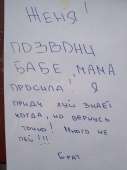 Женя!
ПОЗВОНИ
БАБЕ, МАМА
ПРОСИЛА! Я
ПРИДУ ХУЙ ЗНАЕТ
КОГДА, НО ВЕРНУСЬ
ТОЧНО! МНОГО НЕ
ПЕЙ!!!
БРАТ